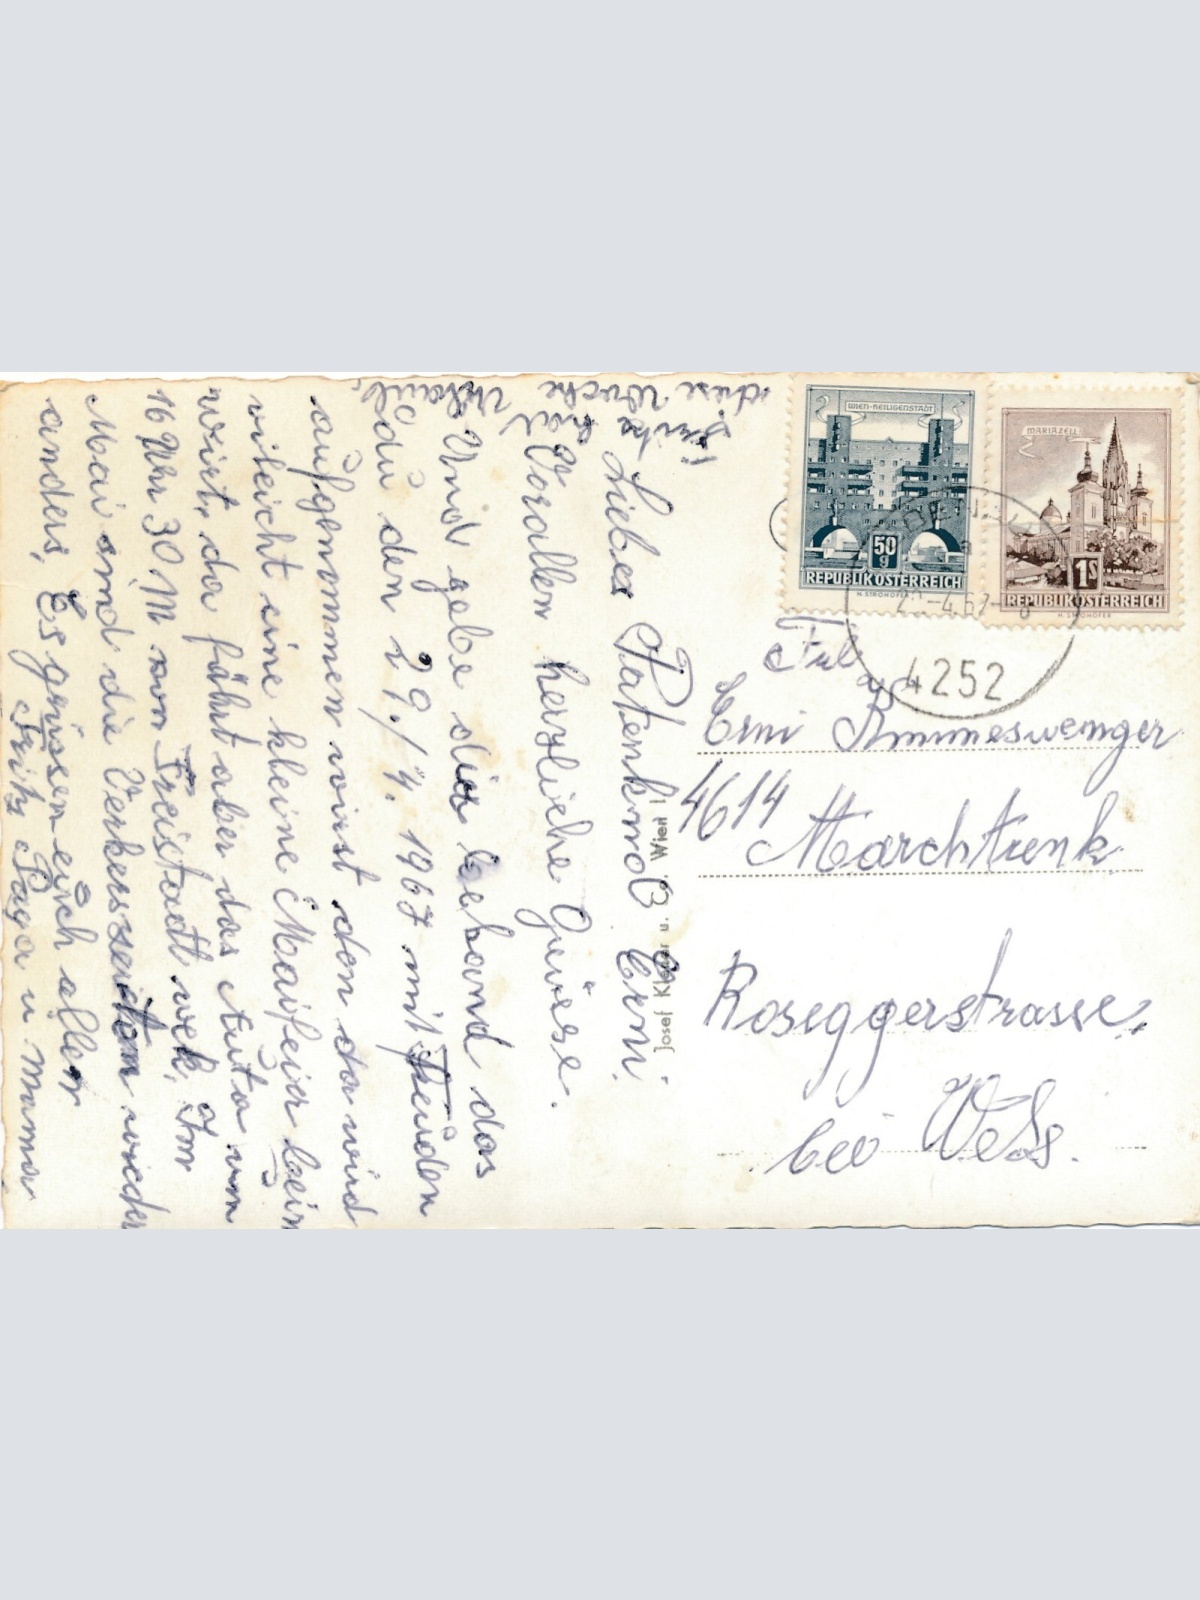 Liebes Patenkind Erni.
Vorallen herzliche Grüsse.
Und gebe dir bekand das
du den 29./4. 1967 mit Freuden
aufgenommen wirst den da wird
vileicht eine kleine Maifeier sein
wirt, da fährt aber das Auto um
16 Uhr 30 M von Freistadt wek, Im
Mai sind die Verkerszeiten wieder
anders, Es grüssen eich aller
Fritz Papa u mama
Fritz hat
diese Woche
Urlaub.
WIEN-HEILIGENSTADT
50
g
REPUBLIK ÖSTERREICH
H. STROHOFER
MARIAZELL
1S
REPUBLIK ÖSTERREICH
H. STROHOFER
4252
Frl
Erni
4614
Marchtrenk
Roseggerstrasse,
bei Wels.
Josef u. Co. Wien